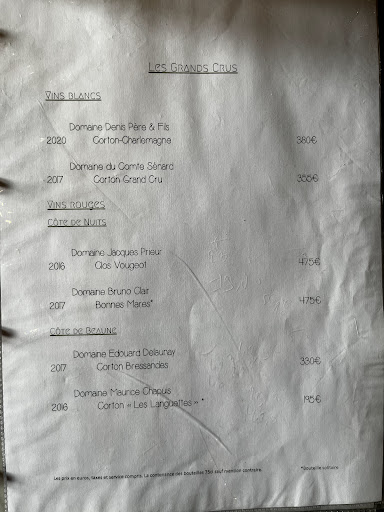 Les Grands Crus
Vins blancs
Domaine Denis Père & Fils
2020 Corton-Charlemagne 380€
Domaine du Comte Sénard
2017 Corton Grand Cru 355€
Vins rouges
Côte de Nuits
Domaine Jacques Prieur
2016 Clos Vougeot 475€
Domaine Bruno Clair
2017 Bonnes Mares* 475€
Côte de Beaune
Domaine Edouard Delaunay
2017 Corton Bressandes 330€
Domaine Maurice Chapuis
2016 Corton « Les Languettes » * 195€
Les prix en euros, taxes et service compris. La contenance des bouteilles 75cl sauf mention contraire. *Bouteille solitaire